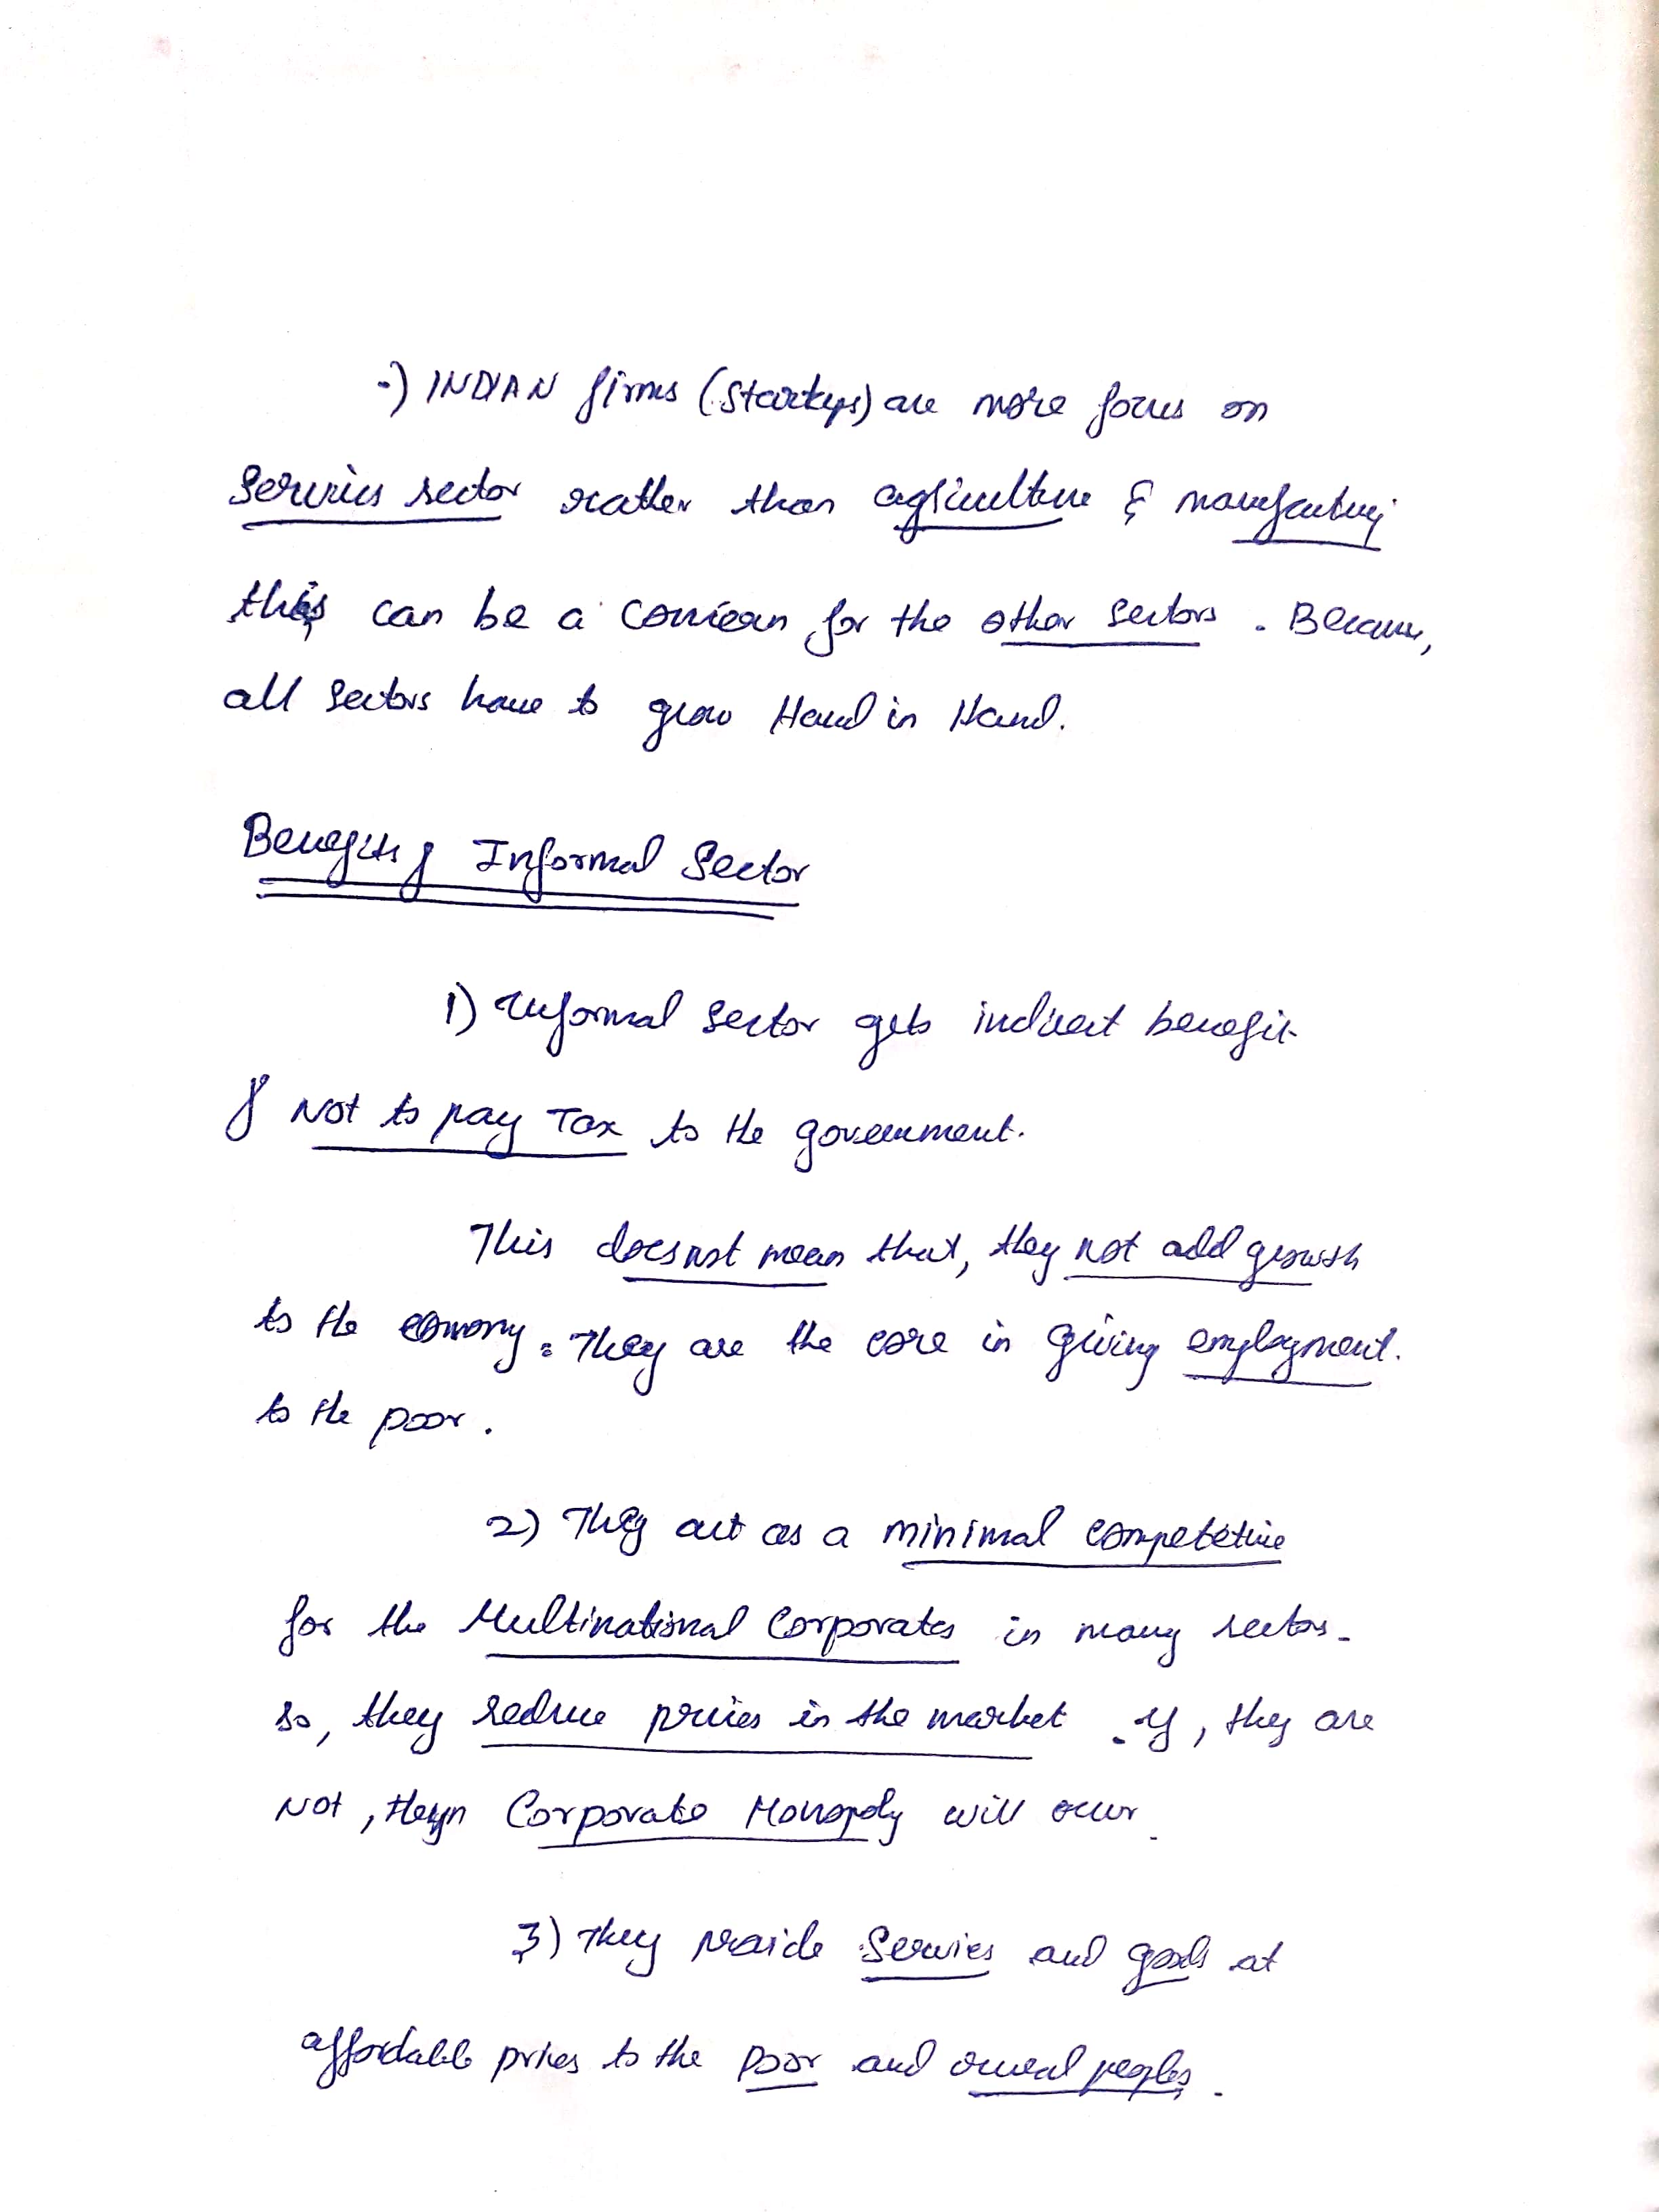 -) INDIAN firms (Startups) are more focus on
Services sector rather than agriculture & manufacturing
this can be a concern for the other sectors. Because,
all sectors have to grow Hand in Hand.
Benefits of Informal Sector
1) Informal sector gets indirect benefit
of Not to pay Tax to the government.
This does not mean that, they not add growth
to the economy. They are the core in giving employment.
to the poor.
2) They act as a minimal competetive
for the Multinational Corporates in many sectors.
so, they reduce prices in the market. If, they are
Not, then Corporate Monopoly will occur.
3) They provide Services and goods at
affordable prices to the poor and rural peoples.